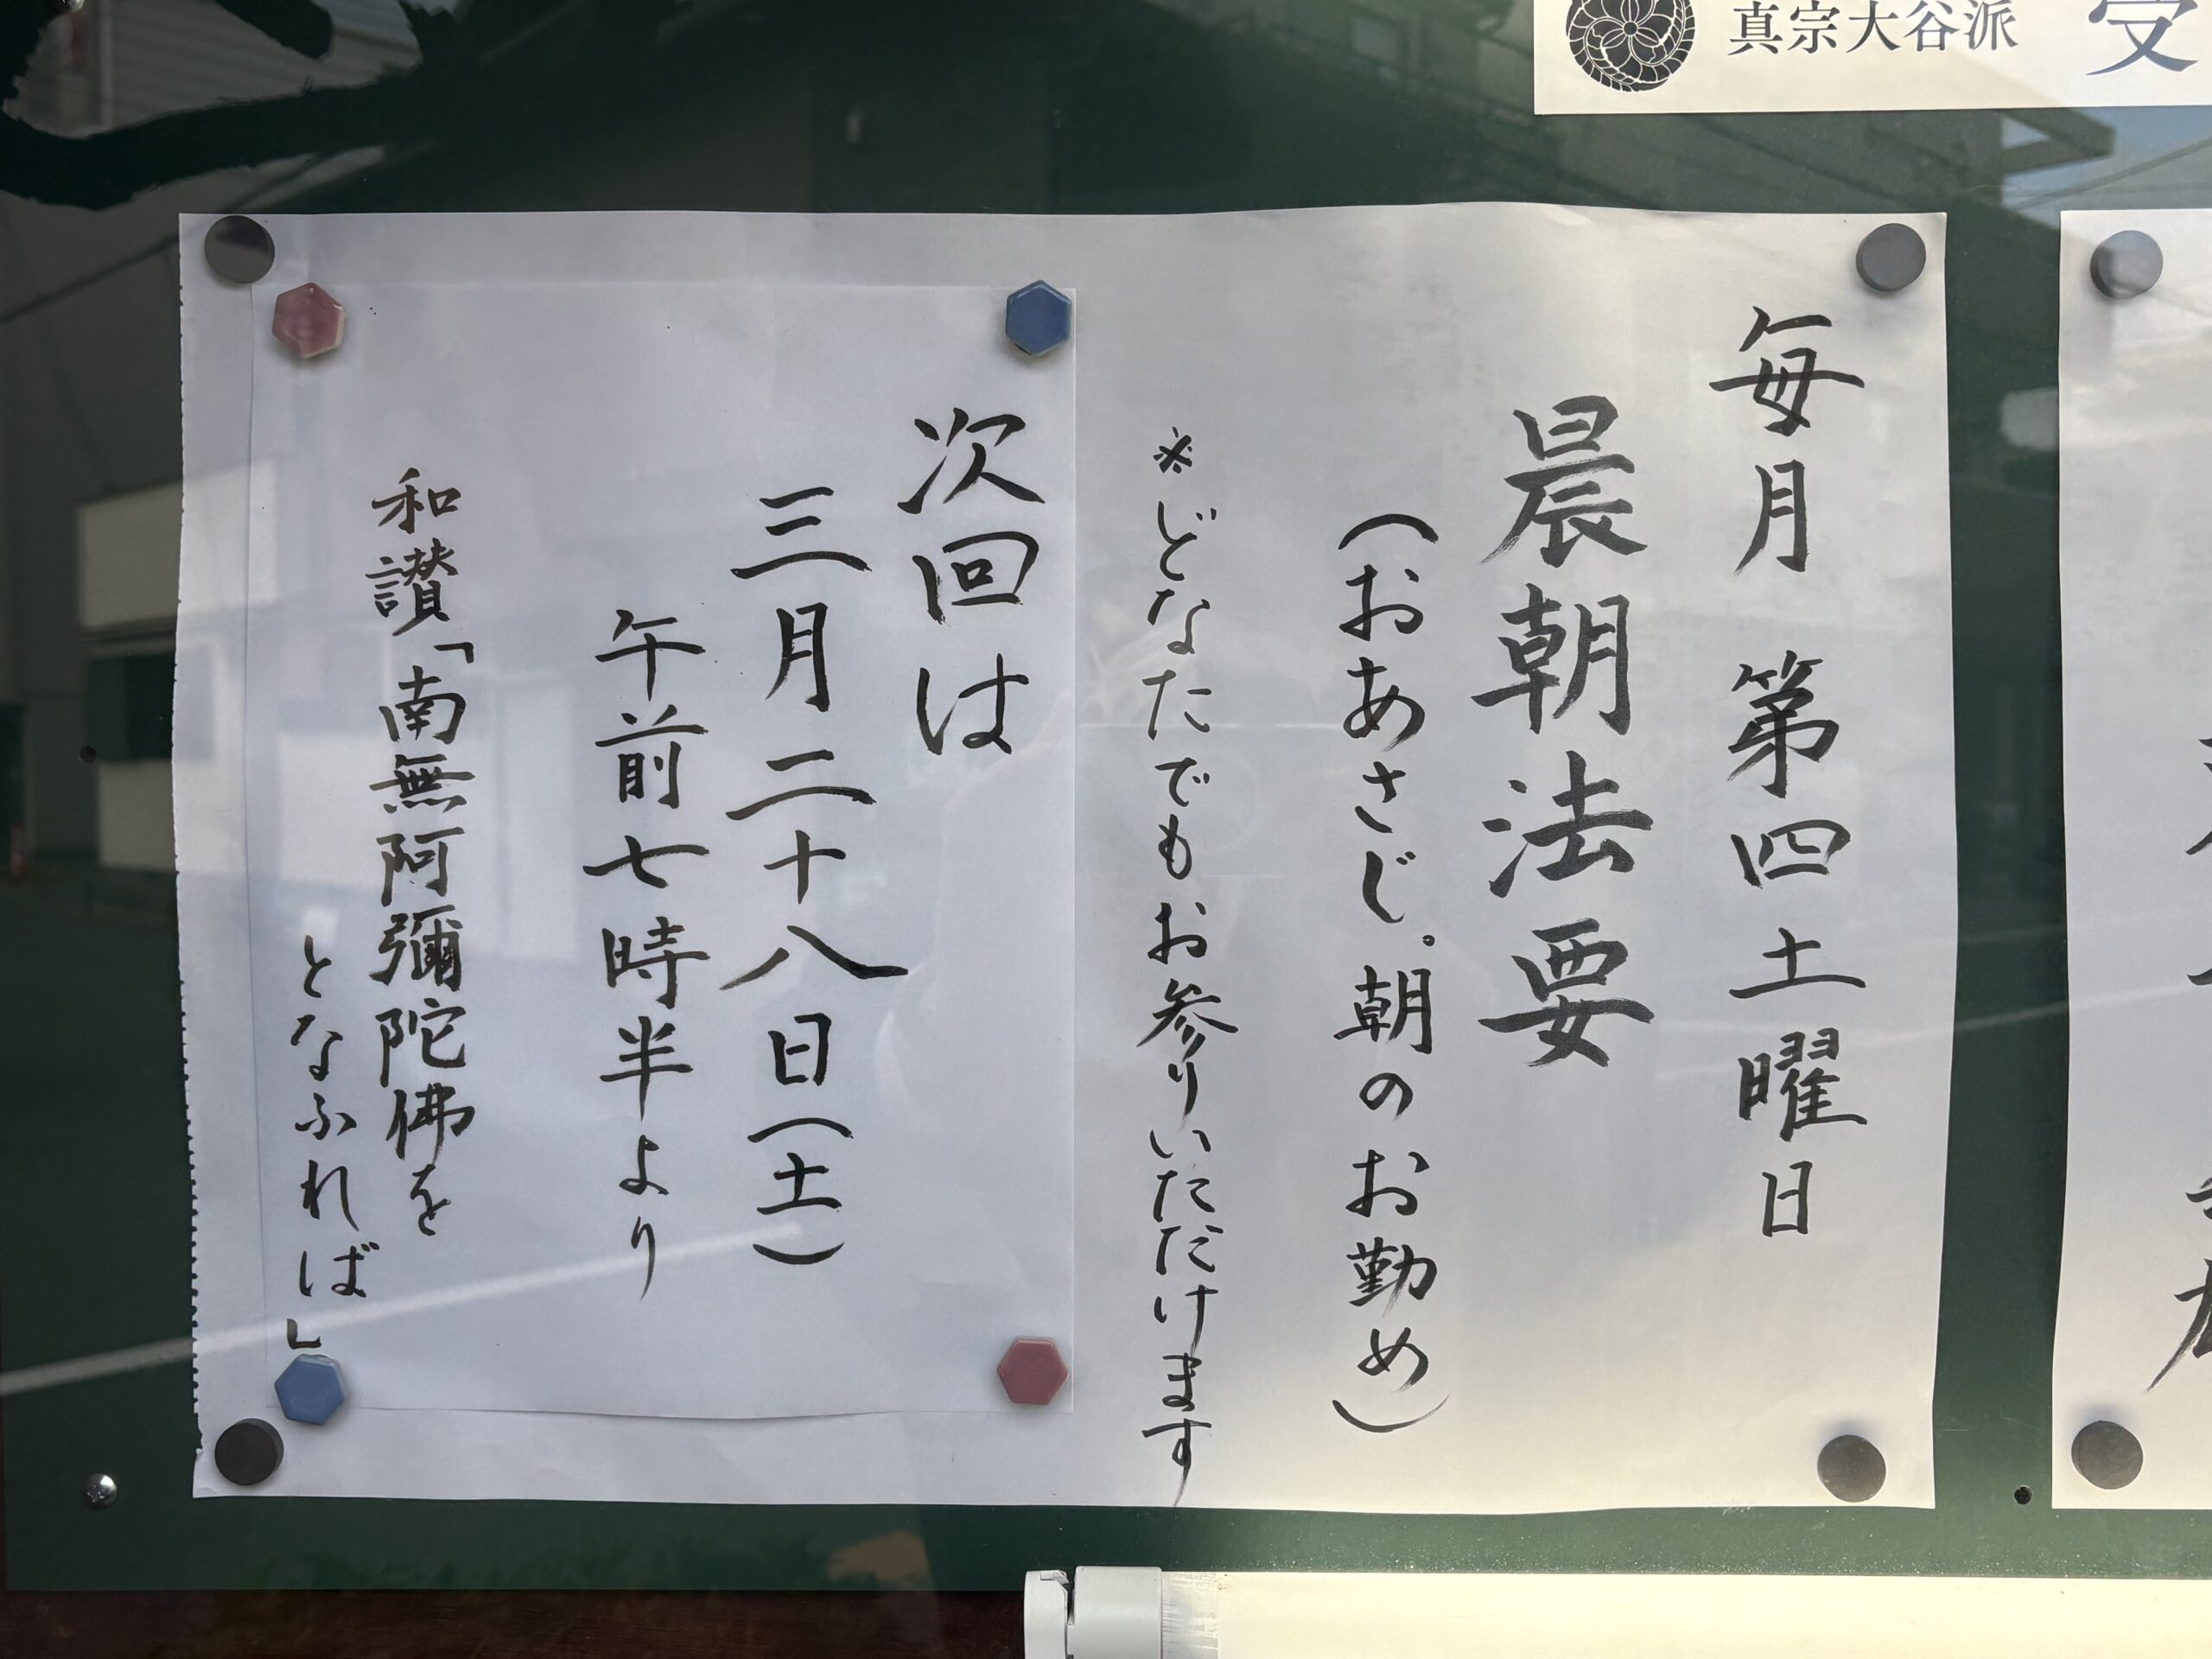 真宗大谷派 受
毎月 第四土曜日
晨朝法要
(おあさじ。朝のお勤め)
※どなたでもお参りいただけます
次回は
三月二十八日(土)
午前七時半より
和讃「南無阿彌陀佛を
となふれば」